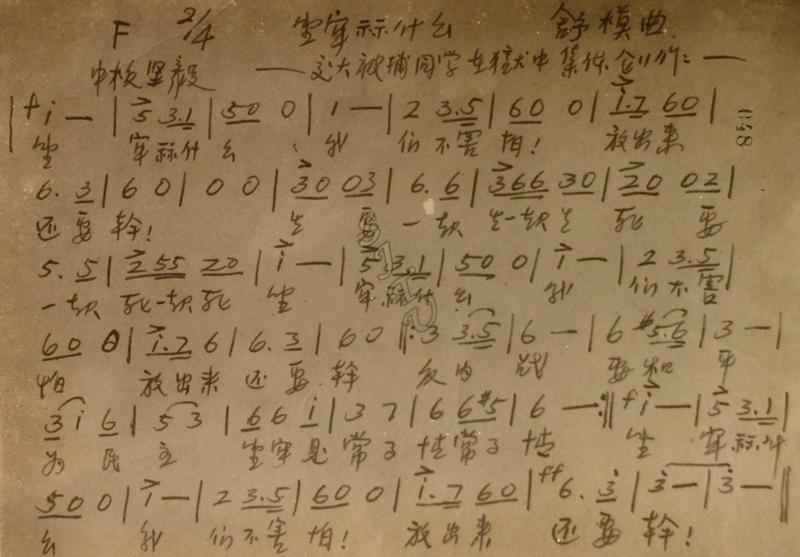 F 2/4 坐牢祘什么 舒模曲
中板坚毅 ——交大被捕同学在獄中集体创作——
| f i — | 5 3.1 | 50 0 | 1 — | 2 3.5 | 60 0 | i.7 60 |
坐 牢祘什么 我们不害怕! 放出来
6. 3 | 6 0 | 0 0 | 30 03 | 6. 6 | 366 30 | 20 02 |
还要幹! 生要一起生一起生 死要
5. 5 | 255 20 | i — | 5 3.1 | 50 0 | i — | 2 3.5 |
一起死一起死 坐牢祘什么 我们不害
60 0 | i.7 6 | 6. 3 | 6 0 |: 3 3.5 | 6 — | 6 #5.6 | 3 — |
怕 放出来还要幹 反内战 要和平
3 i 6 | 5 3 | 6 6 i | 3 7 | 6 6 #5 | 6 — :|| f i — | 5 3.1 |
为民主 坐牢是常事情常事情 坐牢祘什
50 0 | i — | 2 3.5 | 60 0 | i.7 60 | ff 6. 3 | 3 — | 3 — ||
么 我们不害怕! 放出来 还要幹!